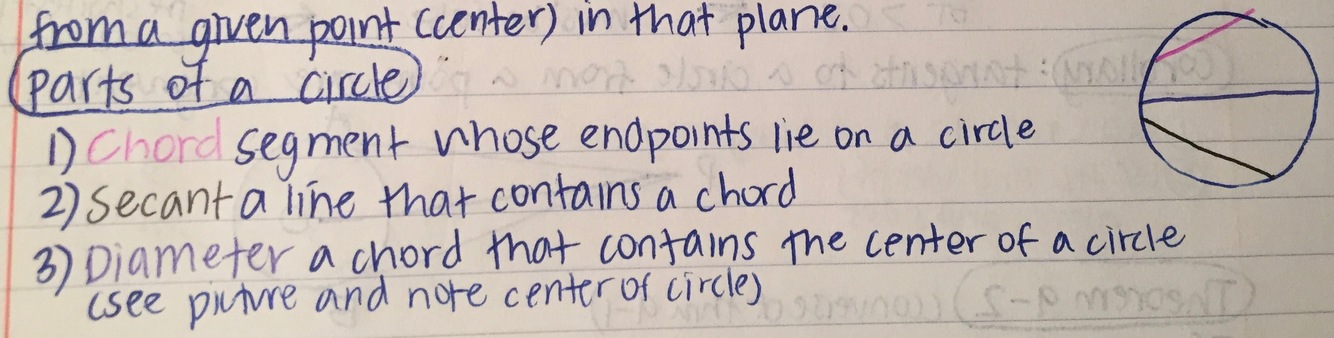 from a given point (center) in that plane.
parts of a circle
1) Chord segment whose endpoints lie on a circle
2) secant a line that contains a chord
3) Diameter a chord that contains the center of a circle
(see picture and note center of circle)